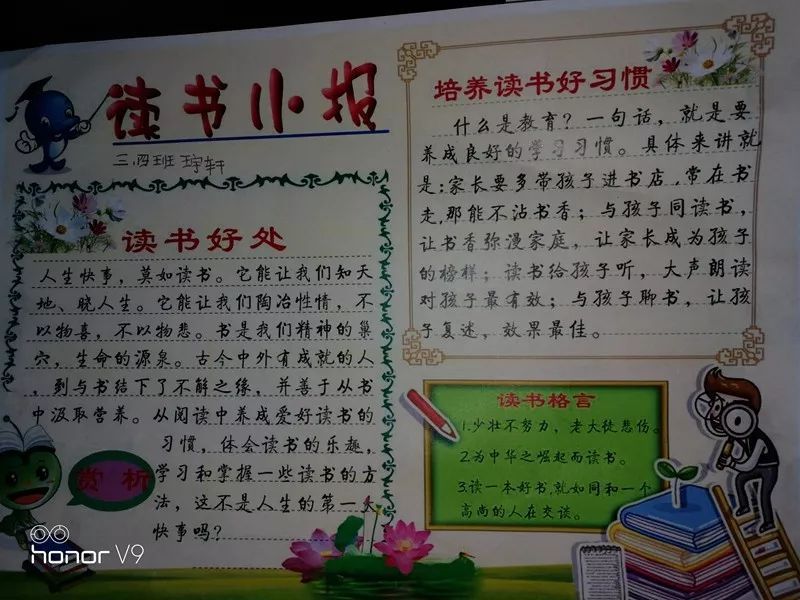 读书小报
三.四班 
读书好处
人生快事，莫如读书。它能让我们知天
地、晓人生。它能让我们陶冶性情，不
以物喜，不以物悲。书是我们精神的巢
穴，生命的源泉。古今中外有成就的人
，到与书结下了不解之缘，并善于从书
中汲取营养。从阅读中养成爱好读书的
习惯，体会读书的乐趣，
学习和掌握一些读书的方
法，这不是人生的第一大
快事吗？
赏析
培养读书好习惯
什么是教育？一句话，就是要
养成良好的学习习惯。具体来讲就
是：家长要多带孩子进书店，常在书
走，那能不沾书香；与孩子同读书，
让书香弥漫家庭，让家长成为孩子
的榜样；读书给孩子听，大声朗读
对孩子最有效；与孩子聊书，让孩
子复述，效果最佳。
读书格言
1.少壮不努力，老大徒悲伤。
2.为中华之崛起而读书。
3.读一本好书，就如同和一个
高尚的人在交谈。
honor V9